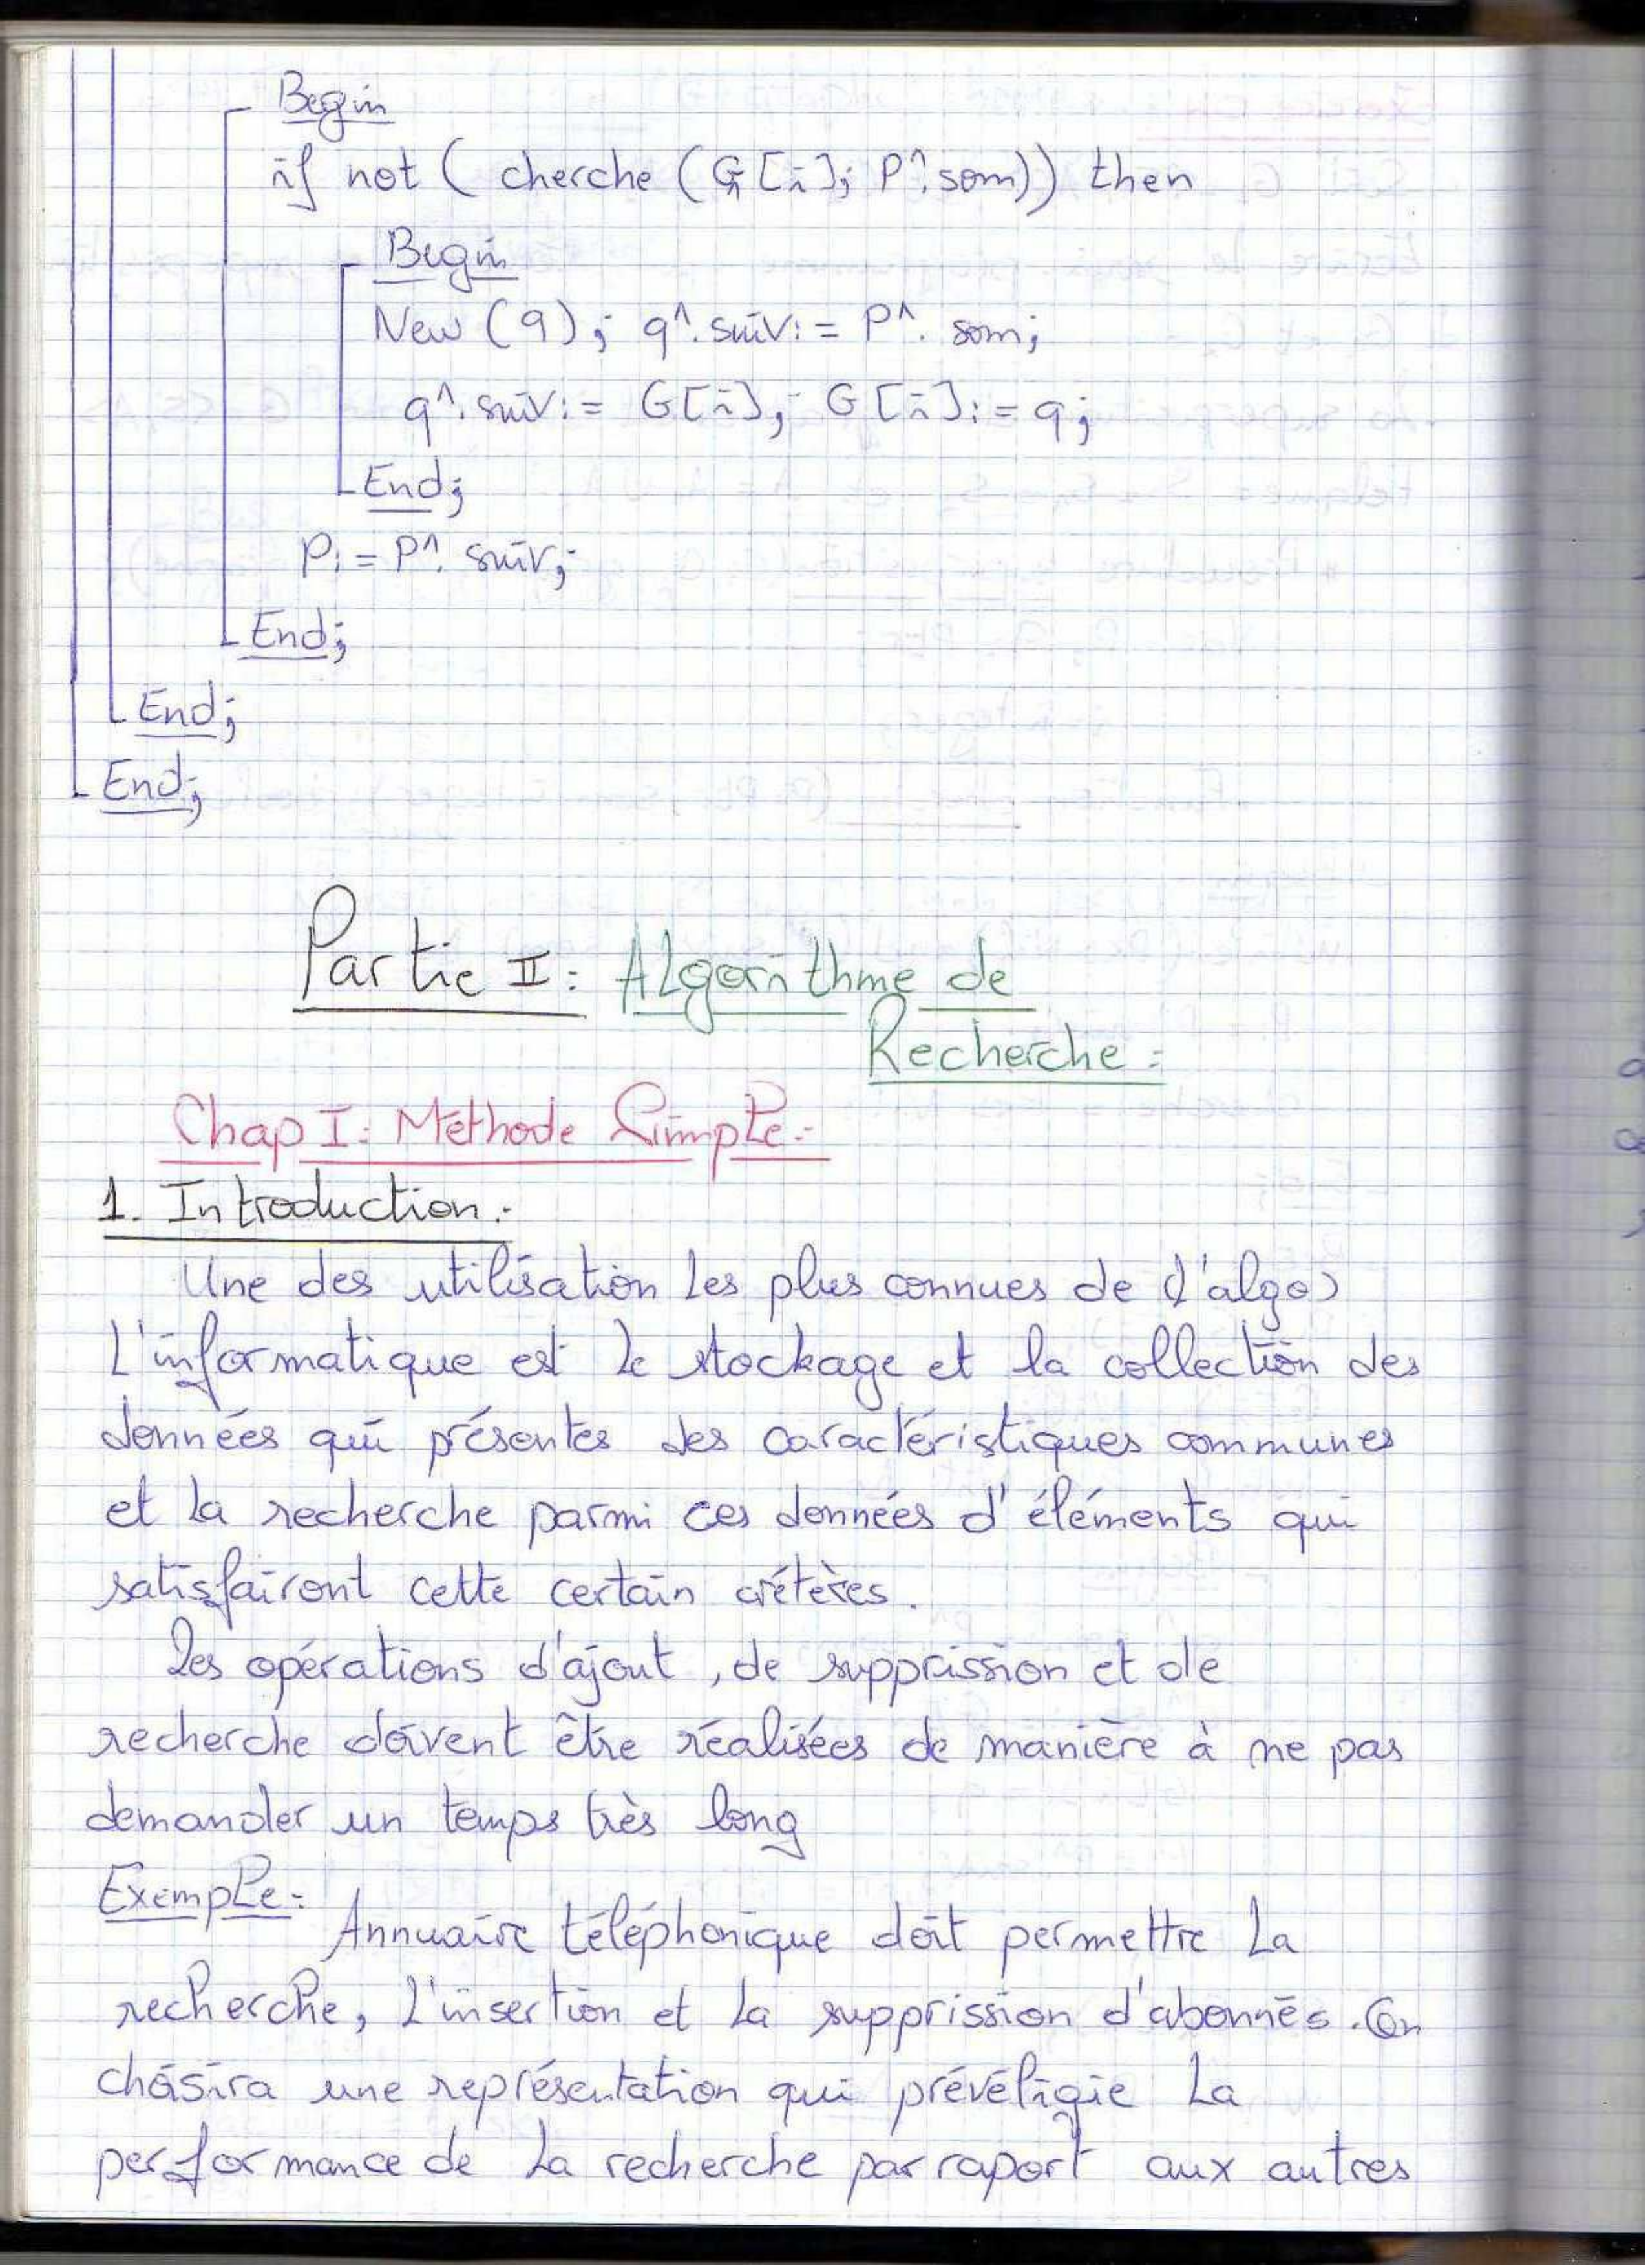 Begin
if not ( cherche (G[i]; P^.som)) then
Begin
New (q); q^.suiv:= P^. som;
q^.suiv:= G[i]; G[i]:= q;
End;
P:= P^. suiv;
End;
End;
End;
Partie II: Algorithme de
Recherche:
Chap I: Méthode Simple:
1. Introduction:
Une des utilisation les plus connues de (l'algo)
l'informatique est le stockage et la collection des
données qui présentes des caractéristiques communes
et la recherche parmi ces données d'éléments qui
satisfairont cette certain crétères.
Les opérations d'ajout, de supprission et de
recherche doivent être réalisées de manière à ne pas
demander un temps très long
Exemple:
Annuaire téléphonique doit permettre la
recherche, l'insertion et la supprission d'abonnés. On
choisira une représentation qui prévéligie la
performance de la recherche par raport aux autres